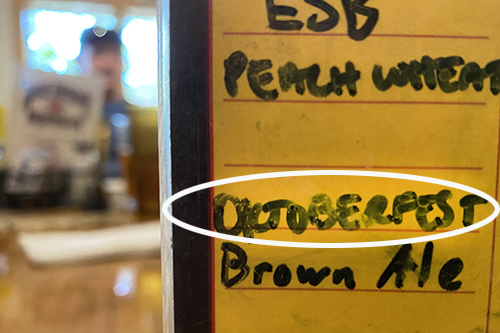 ESB
PEACH WHEAT
OKTOBERFEST
Brown Ale